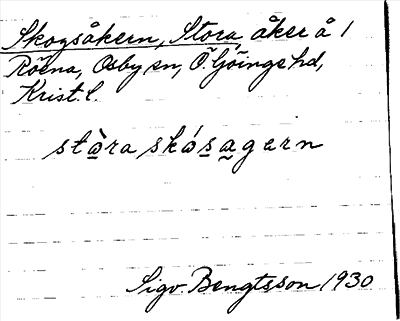 Skogsåkern, Stora, åker å 1
Röena, Osby sn, Ö. Göinge hd,
Krist. l.
stòra skósagern
Sigv. Bengtsson 1930